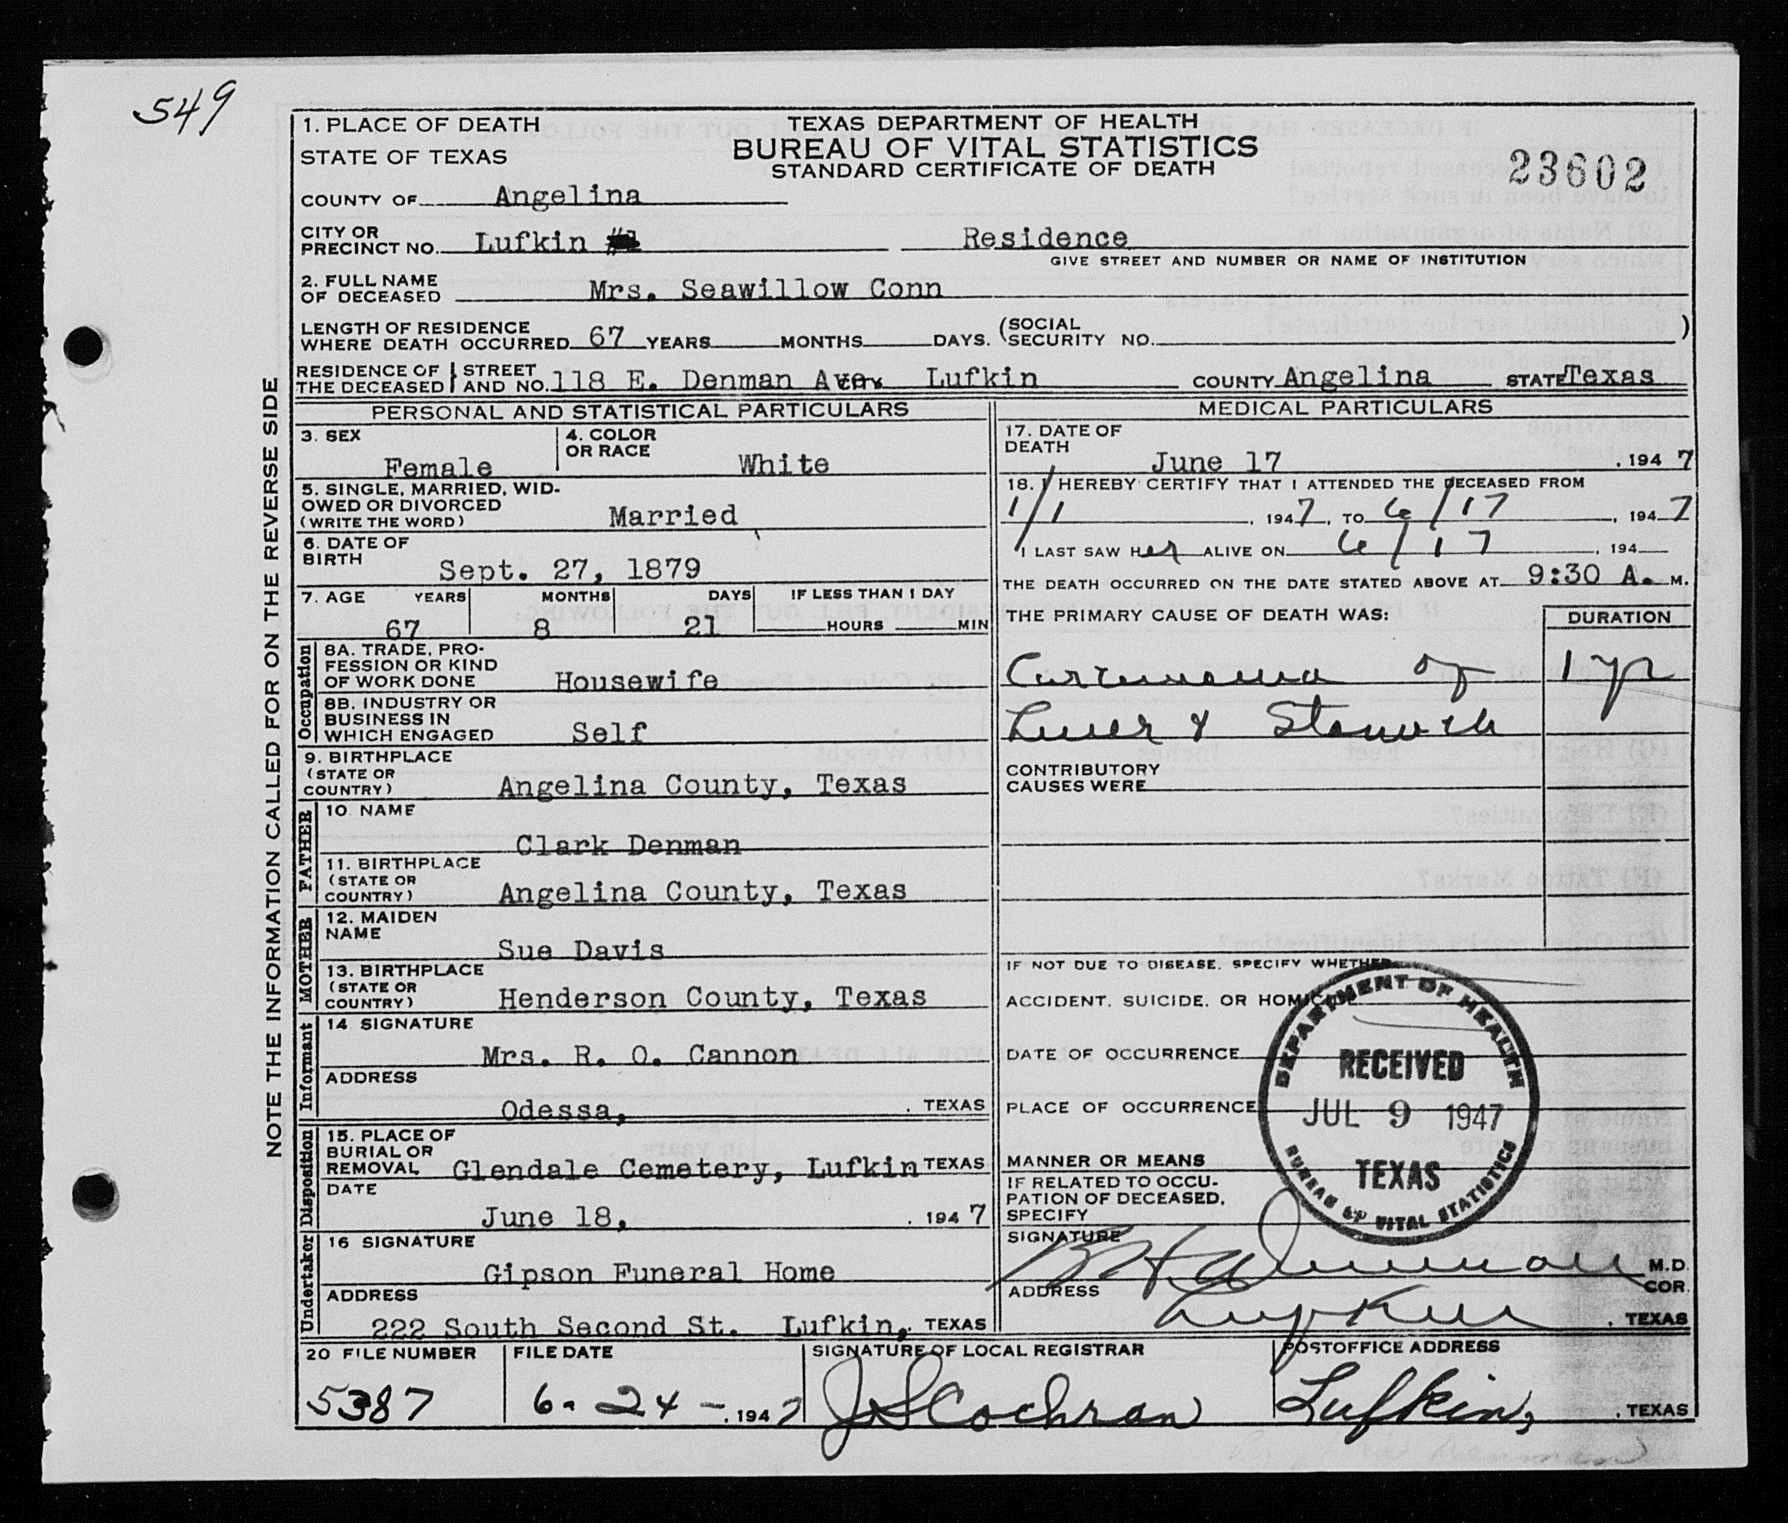 549
1. PLACE OF DEATH
STATE OF TEXAS
TEXAS DEPARTMENT OF HEALTH
BUREAU OF VITAL STATISTICS
STANDARD CERTIFICATE OF DEATH
23602
COUNTY OF Angelina
CITY OR PRECINCT NO. Lufkin Residence
GIVE STREET AND NUMBER OR NAME OF INSTITUTION
2. FULL NAME OF DECEASED Mrs. Seawillow Conn
LENGTH OF RESIDENCE WHERE DEATH OCCURRED 67 YEARS MONTHS DAYS. (SOCIAL SECURITY NO. )
RESIDENCE OF THE DECEASED STREET AND NO. 118 E. Denman Ave. Lufkin COUNTY Angelina STATE Texas
PERSONAL AND STATISTICAL PARTICULARS
3. SEX Female
4. COLOR OR RACE White
5. SINGLE, MARRIED, WIDOWED OR DIVORCED
(WRITE THE WORD) Married
6. DATE OF BIRTH Sept. 27, 1879
7. AGE YEARS MONTHS DAYS IF LESS THAN 1 DAY
67 8 21 HOURS MIN
Occupation
8A. TRADE, PROFESSION OR KIND OF WORK DONE Housewife
8B. INDUSTRY OR BUSINESS IN WHICH ENGAGED Self
9. BIRTHPLACE
(STATE OR COUNTRY) Angelina County, Texas
FATHER
10 NAME Clark Denman
11. BIRTHPLACE
(STATE OR COUNTRY) Angelina County, Texas
MOTHER
12. MAIDEN NAME Sue Davis
13. BIRTHPLACE
(STATE OR COUNTRY) Henderson County, Texas
Informant
14 SIGNATURE Mrs. R. O. Cannon
ADDRESS Odessa, . TEXAS
Disposition
15. PLACE OF BURIAL OR REMOVAL Glendale Cemetery, Lufkin TEXAS
DATE June 18, . 1947
Undertaker
16 SIGNATURE Gipson Funeral Home
ADDRESS 222 South Second St. Lufkin, TEXAS
MEDICAL PARTICULARS
17. DATE OF DEATH June 17 . 1947
18. I HEREBY CERTIFY THAT I ATTENDED THE DECEASED FROM
1/1 , 1947, TO 6/17 , 1947
I LAST SAW Her ALIVE ON 6/17 , 194
THE DEATH OCCURRED ON THE DATE STATED ABOVE AT 9:30 A. M.
THE PRIMARY CAUSE OF DEATH WAS: DURATION
Carcinoma of 1 yr
Liver & Stomach
CONTRIBUTORY CAUSES WERE
IF NOT DUE TO DISEASE, SPECIFY WHETHER
ACCIDENT, SUICIDE, OR HOMICIDE
DATE OF OCCURRENCE
PLACE OF OCCURRENCE
MANNER OR MEANS
IF RELATED TO OCCUPATION OF DECEASED, SPECIFY
DEPARTMENT OF HEALTH
RECEIVED
JUL 9 1947
TEXAS
BUREAU OF VITAL STATISTICS
SIGNATURE M.D.
COR.
ADDRESS Lufkin . TEXAS
20 FILE NUMBER FILE DATE SIGNATURE OF LOCAL REGISTRAR POSTOFFICE ADDRESS
5387 6-24-, 1947 J S Cochran Lufkin, . TEXAS
NOTE THE INFORMATION CALLED FOR ON THE REVERSE SIDE